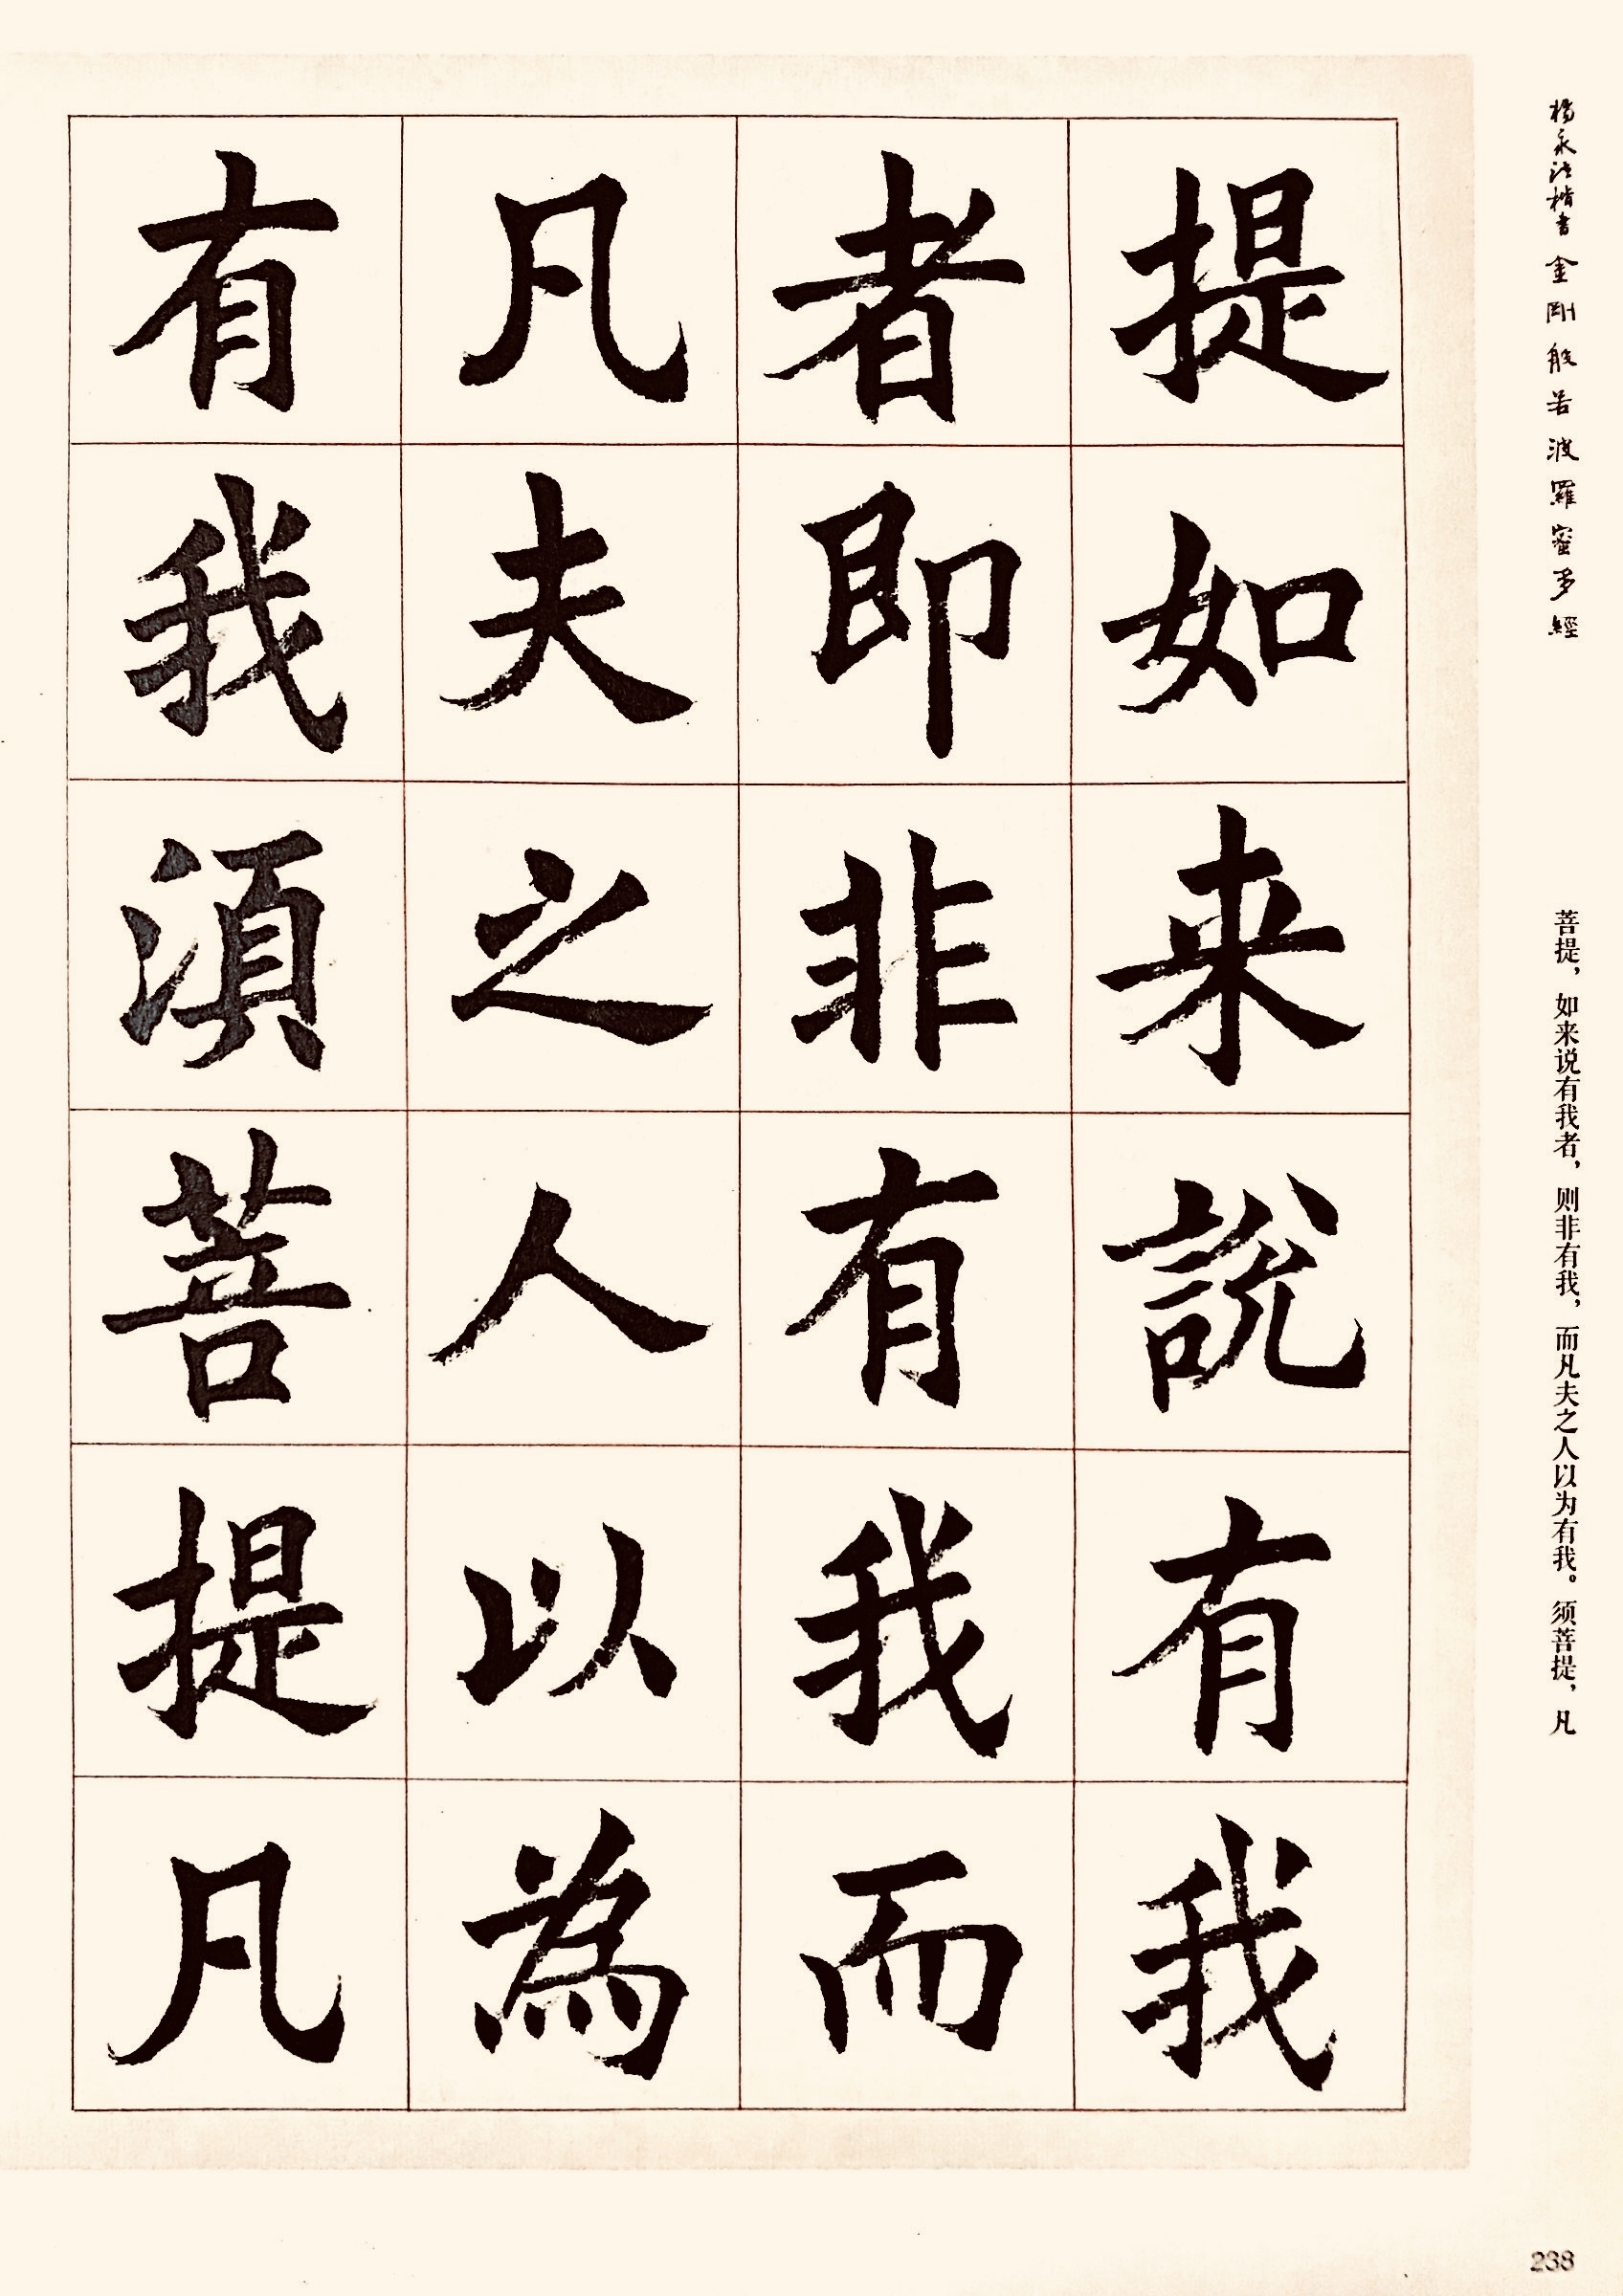 楊永法楷書 金剛般若波羅蜜多經
菩提，如来说有我者，则非有我，而凡夫之人以为有我。须菩提，凡
提如来說有我
者即非有我而
凡夫之人以為
有我湏菩提凡
238